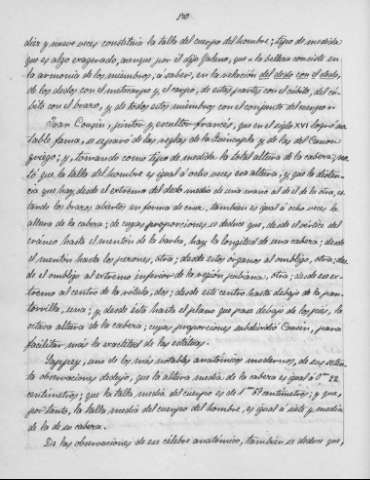 diez y nueve veces constituia la talla del cuerpo del hombre; tipo de medida
que es algo exagerado, aunque por él dijo Galeno, que "la belleza consiste en
la armonia de los miembros, á saber, en la relacion del dedo con el dedo,
de los dedos con el metacarpo y el carpo, de estas partes con el cúbito, del cú-
bito con el brazo, y de todos estos miembros con el conjunto del cuerpo"
Juan Cousin, pintor y escultor francés, que en el siglo XVI logró no
table fama, se separó de las reglas de la y de las del Canon
griego; y, tomando como tipo de medida la total altura de la cabeza, no-
tó que la talla del hombre es igual á ocho veces esa altura, y que la distan-
cia que hay desde el extremo del dedo medio de una mano al de el de la otra, es-
tando los brazos abiertos en forma de cruz, tambien es igual á ocho veces la
altura de la cabeza; de cuyas proporciones se deduce que, desde el vértice del
cráneo hasta el menton de la barba, hay la longitud de una cabeza; desde
el menton hasta los pezones, otra; desde estos órganos al ombligo, otra; des-
de el ombligo al extremo inferior de la region pubiana, otra; desde ese ex-
tremo al centro de la rótula, dos; desde este centro hasta debajo de la pan-
torrilla, una; y desde ésta hasta el plano que pasa debajo de los piés, la
octava altura de la cabeza; cuyas proporciones subdividió Cousin, para
facilitar más la exactitud de las estatuas.
Sappey, uno de los más notables anatómicos modernos, de sus
observaciones dedujo, que la altura media de la cabeza es igual á 0m 22
centímetros; que la talla media del cuerpo es de 1m 69 centímetros; y que,
por tanto, la talla media del cuerpo del hombre, es igual á siete y media
la de su cabeza.
De las observaciones de ese célebre anatómico, tambien se deduce que,